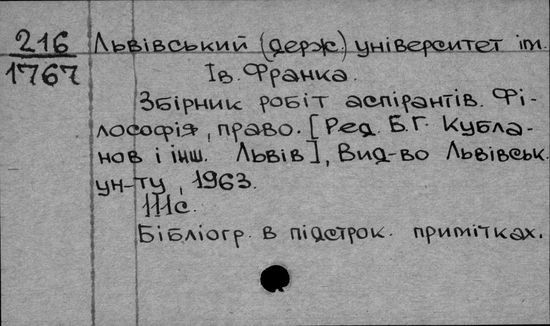 216 Львівський (держ.) університет ім.
1767 Ів. Франка.
Збірник робіт аспірантів. Фі-
лософія, право. [Ред. Б.Г. Кубла-
нов і інш. Львів], Вид-во Львівськ.
ун-ту, 1963.
111с.
Бібліогр. в підстрок. примітках.